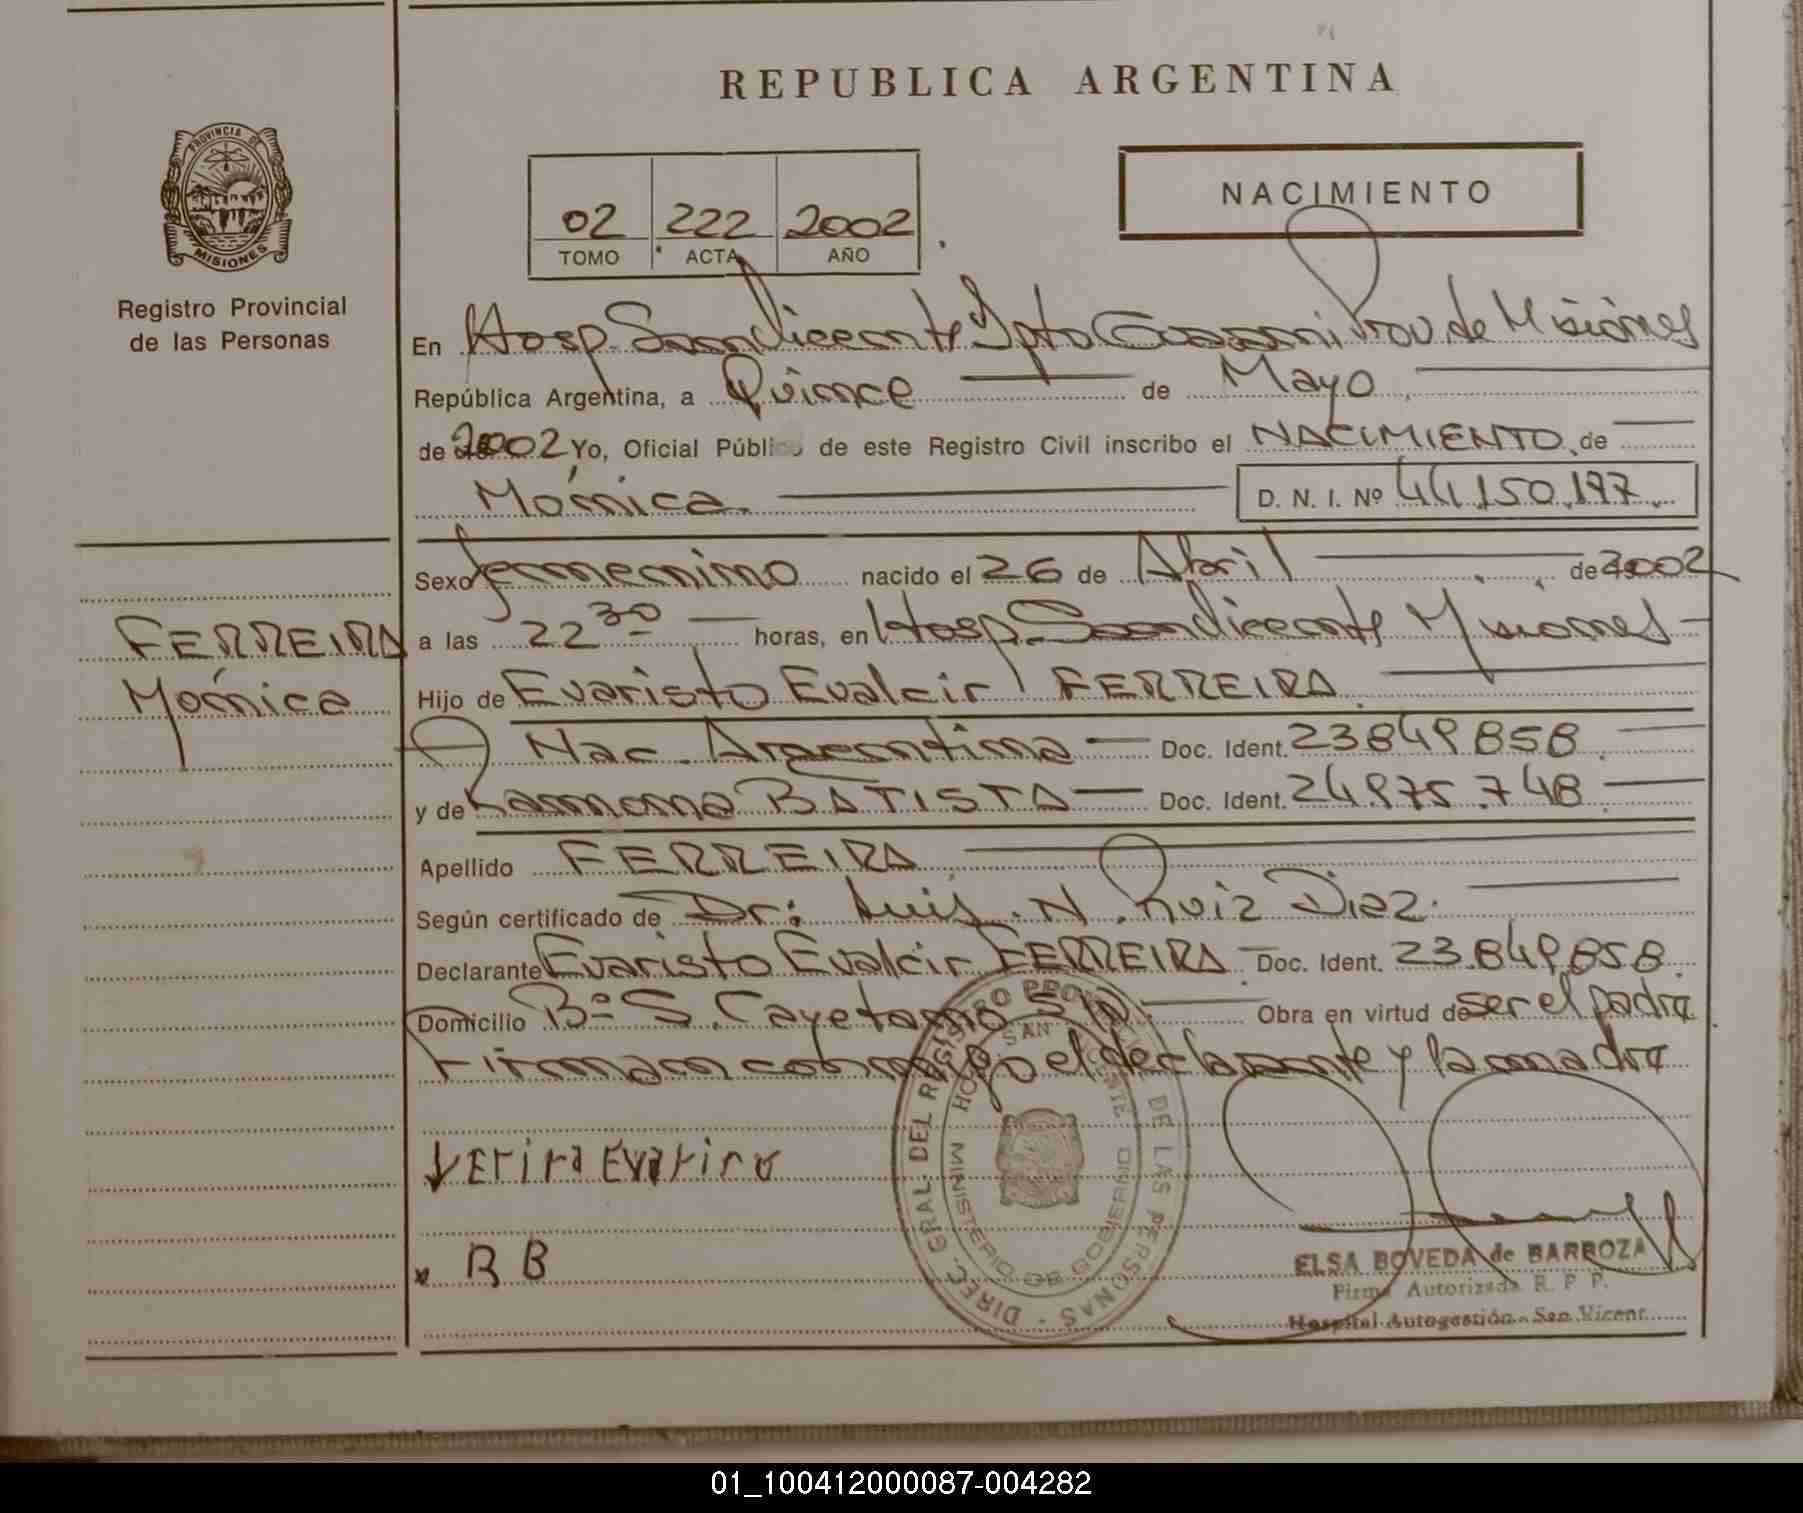 REPUBLICA ARGENTINA
PROVINCIA DE
MISIONES
Registro Provincial
de las Personas
02 222 2002
TOMO ACTA AÑO
NACIMIENTO
En Hosp. San Vicente Dpto Guarani Prov. de Misiones
República Argentina, a Quince de Mayo
de 2002 Yo, Oficial Público de este Registro Civil inscribo el NACIMIENTO de
Mónica. D. N. I. Nº 44.150.197
Sexo femenino nacido el 26 de Abril de 2002
FERREIRA
Mónica
a las 22 30 horas, en Hosp. San Vicente Misiones
Hijo de Evaristo Evalcir FERREIRA
Nac. Argentina Doc. Ident. 23.849.858
y de Ramona BATISTA Doc. Ident. 24.975.748
Apellido FERREIRA
Según certificado de Dr: Luis. N. Ruiz Diaz.
Declarante Evaristo Evalcir FERREIRA Doc. Ident. 23.849.858
Domicilio Bº S. Cayetano S/n. Obra en virtud de ser el padre
Firman conmigo el declarante y la madre
DIREC. GRAL. DEL REGISTRO PROVINCIAL DE LAS PERSONAS
HOSP. SAN VICENTE
MINISTERIO DE GOBIERNO
VErira Evarico
x R B
ELSA BOVEDA de BARROZA
Firma Autorizada R. P. P.
Hospital Autogestión - San Vicent
01_100412000087-004282